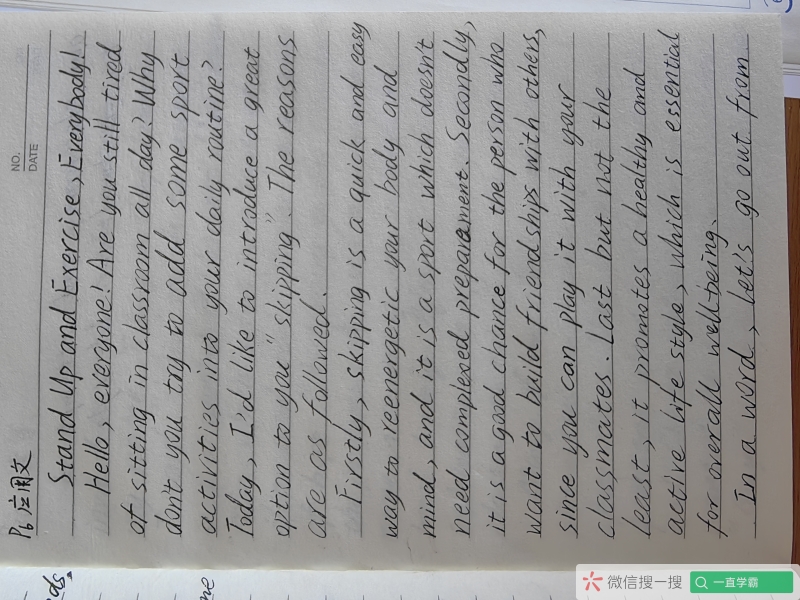 NO.
DATE
P6 应用文
Stand Up and Exercise, Everybody!
Hello, everyone! Are you still tired
of sitting in classroom all day? Why
don't you try to add some sport
activities into your daily routine?
Today, I'd like to introduce a great
option to you "skipping". The reasons
are as followed.
Firstly, skipping is a quick and easy
way to reenergetic your body and
mind, and it is a sport which doesn't
need complexed preparement. Secondly,
it is a good chance for the person who
want to build friendships with others,
since you can play it with your
classmates. Last but not the
least, it promotes a healthy and
active life style, which is essential
for overall well-being.
In a word, let's go out from
ds.
me
微信搜一搜
一直学霸